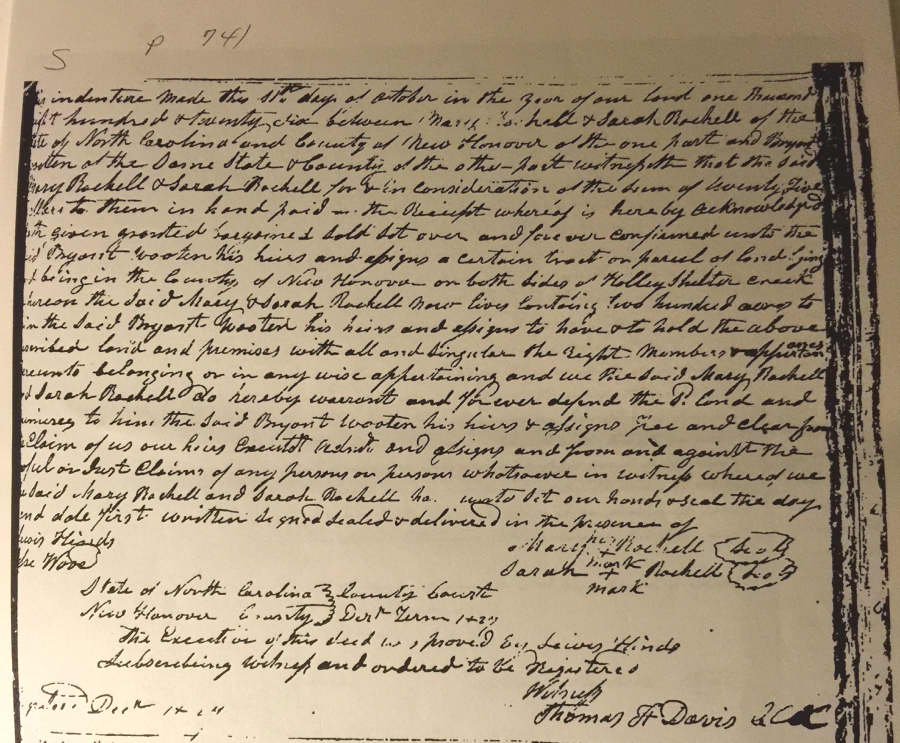 S P 741
indenture made this 11th day of October in the year of our Lord one thousand
hundred & twenty six between Mary Rochell & Sarah Rochell of the
of North Carolina and County of New Honover of the one part and Bryant
of the Same State & County of the other part witnesseth that the said
Mary Rochell & Sarah Rochell for & in consideration of the sum of twenty five
to them in hand paid the Receipt whereof is hereby acknowledged
given granted bargained sold set over and forever confirmed unto the
Bryant Wooten his heirs and assigns a certain tract or parcel of land
being in the County of New Honover on both sides of Holley Shelter creek
whereon the said Mary & Sarah Rochell now lives containg two hundred acres to
him the said Bryant Wooten his heirs and assigns to have & to hold the above
land and premises with all and singular the right members & appurtenances
belonging or in any wise appertaining and we the said Mary Rochell
Sarah Rochell do hereby warrant and forever defend the Sd. land and
to him the said Bryant Wooten his heirs & assigns free and clear from
Claim of us our heirs and assigns and from and against the
or Just Claims of any persons or persons whatsoever in witness whereof we
said Mary Rochell and Sarah Rochell unto set our hands & seal the day
and date first written signed sealed & delivered in the presence of
Lewis Hinds Mary her + mark Rochell (Seal)
Sarah + mark Rochell (Seal)
State of North Carolina } County Court
New Honover County } Decr Term
The Execution of this deed was proved by Lewis Hinds
Subscribing witness and ordered to be Registered
Witness
Decr Thomas F Davis